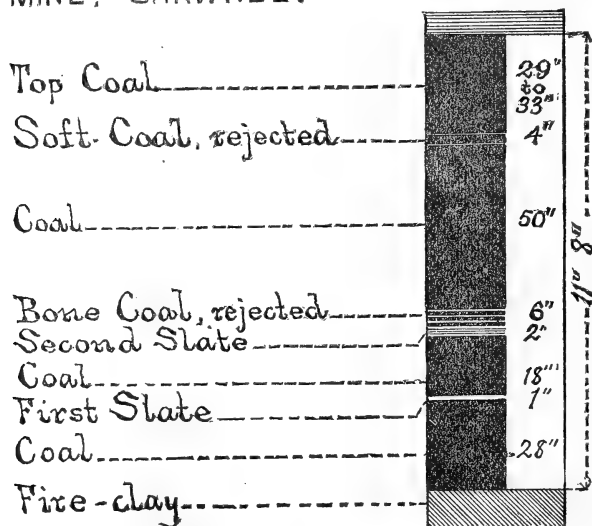 Top Coal 29" to 33"
Soft-Coal, rejected 4"
Coal 50"
Bone Coal, rejected 6"
Second Slate 2"
Coal 18"
First Slate 1"
Coal 28"
Fire-clay
11" 8"